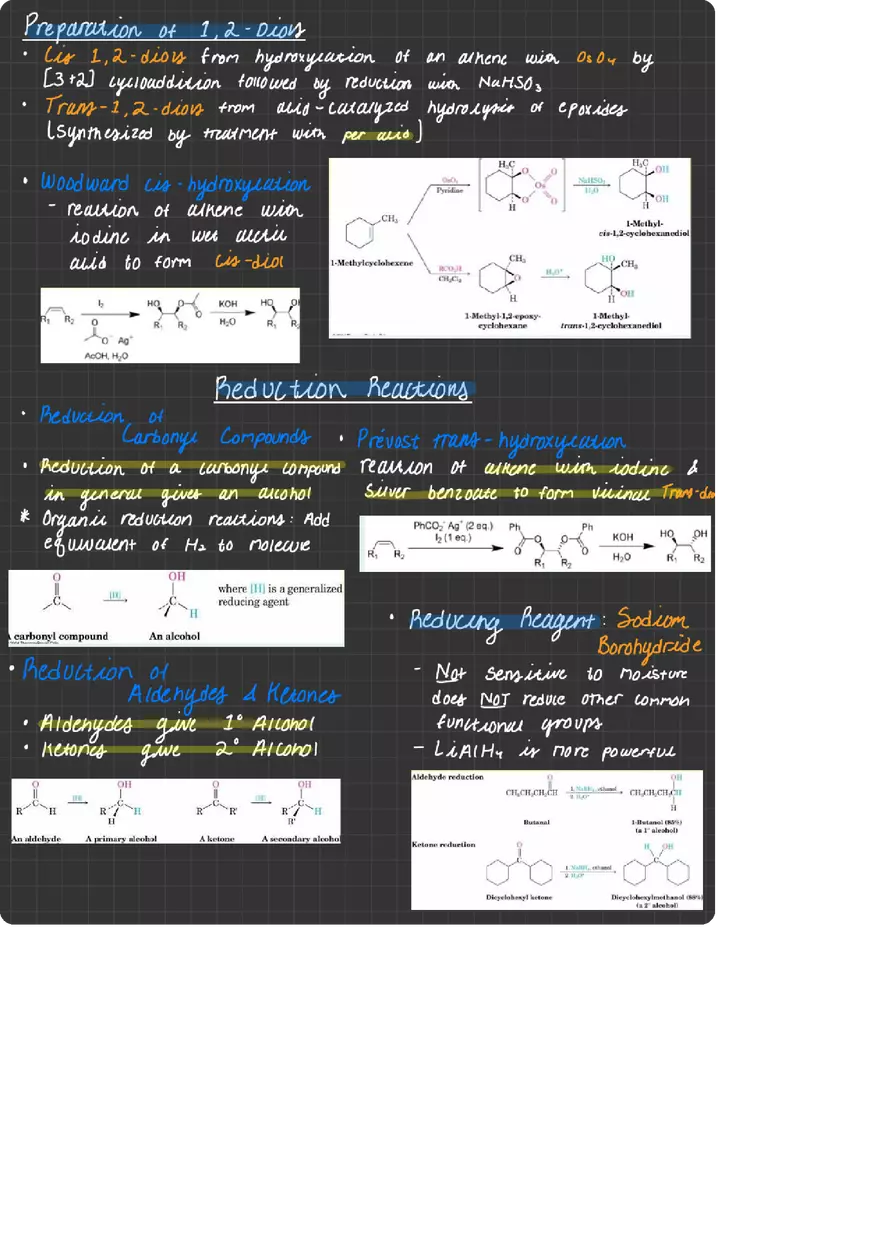 Preparation of 1,2-Diols
• Cis 1,2-diols from hydroxylation of an alkene with OsO4 by
[3+2] cycloaddition followed by reduction with NaHSO3
• Trans-1,2-diols from acid-catalyzed hydrolysis of epoxides
(synthesized by treatment with per acid)
• Woodward cis-hydroxylation
- reaction of alkene with
iodine in wet acetic
acid to form cis-diol
I2
R1 R2
O
O- Ag+
AcOH, H2O
HO O
O
R1 R2
KOH
H2O
HO
R1 R
CH3
1-Methylcyclohexene
OsO4
Pyridine
H3C
O O
Os
O O
H
NaHSO3
H2O
H3C OH
OH
H
1-Methyl-
cis-1,2-cyclohexanediol
RCO3H
CH2Cl2
CH3
O
H
1-Methyl-1,2-epoxy-
cyclohexane
H3O+
HO CH3
OH
H
1-Methyl-
trans-1,2-cyclohexanediol
Reduction Reactions
• Reduction of
Carbonyl Compounds
• Reduction of a carbonyl compound
in general gives an alcohol
* Organic reduction reactions: Add
equivalent of H2 to molecule
O
C
[H]
OH
C
H
where [H] is a generalized
reducing agent
A carbonyl compound An alcohol
• Prévost trans-hydroxylation
reaction of alkene with iodine &
Silver benzoate to form vicinal Trans-dio
R1 R2
PhCO2- Ag+ (2 eq.)
I2 (1 eq.)
Ph Ph
O O O O
R1 R2
KOH
H2O
HO OH
R1 R2
• Reduction of
Aldehydes & Ketones
• Aldehydes give 1° Alcohol
• Ketones give 2° Alcohol
O
R C H
[H]
OH
R C H
H
O
R C R'
[H]
OH
R C H
R'
An aldehyde A primary alcohol A ketone A secondary alcohol
• Reducing Reagent: Sodium
Borohydride
- Not sensitive to moisture
does NOT reduce other common
functional groups
- LiAlH4 is more powerful
Aldehyde reduction
O
CH3CH2CH2CH
1. NaBH4, ethanol
2. H3O+
OH
CH3CH2CH2CH
H
Butanal
1-Butanol (85%)
(a 1° alcohol)
Ketone reduction
O
C
1. NaBH4, ethanol
2. H3O+
H OH
C
Dicyclohexyl ketone
Dicyclohexylmethanol (88%)
(a 2° alcohol)